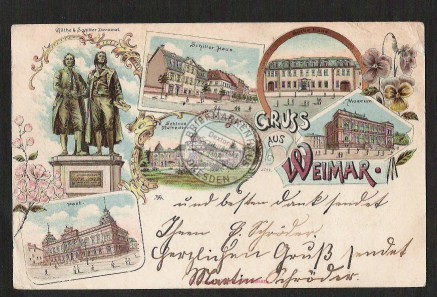 Göthe & Schiller Denkmal.
Schiller Haus.
Göthe Haus
Museum
Schloss
GRUSS
AUS
WEIMAR.
DRESDEN
Post.
und besten Dank sendet
Ihnen E. Schröder.
Herzlichen Gruß sendet
Martin Schröder.